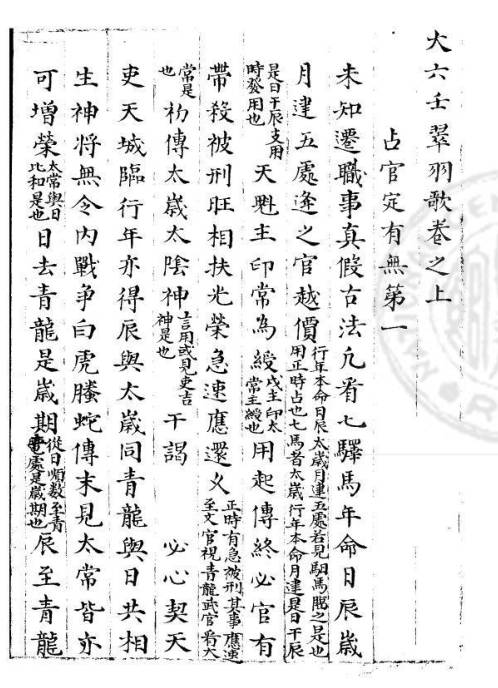 大六壬翠羽歌卷之上
占官定有無第一
未知遷職事真假古法凢看七驛馬年命日辰歲
月建五處逢之官越價行年本命日辰太歲月建五處若見馹馬賜之是也用正時占也七馬者太歲行年本命月建是日干辰
是日干辰支用時發用也天魁主印常為綬戌主印太常主綬也用起傳終必官有
帶殺被刑旺相扶光榮急速應還乂正時有急被刑其事應速至文官視青龍武官爲大
常是也朸傳太歲太陰神言用或見吏吉神是也干謁 必心契天
吏天城臨行年亦得辰與太歲同青龍與日共相
生神将無令内戰争白虎螣蛇傳末見太常皆亦
可增榮太常與日比和是也日去青龍是歲期從日順數至青處是歲期也辰至青龍